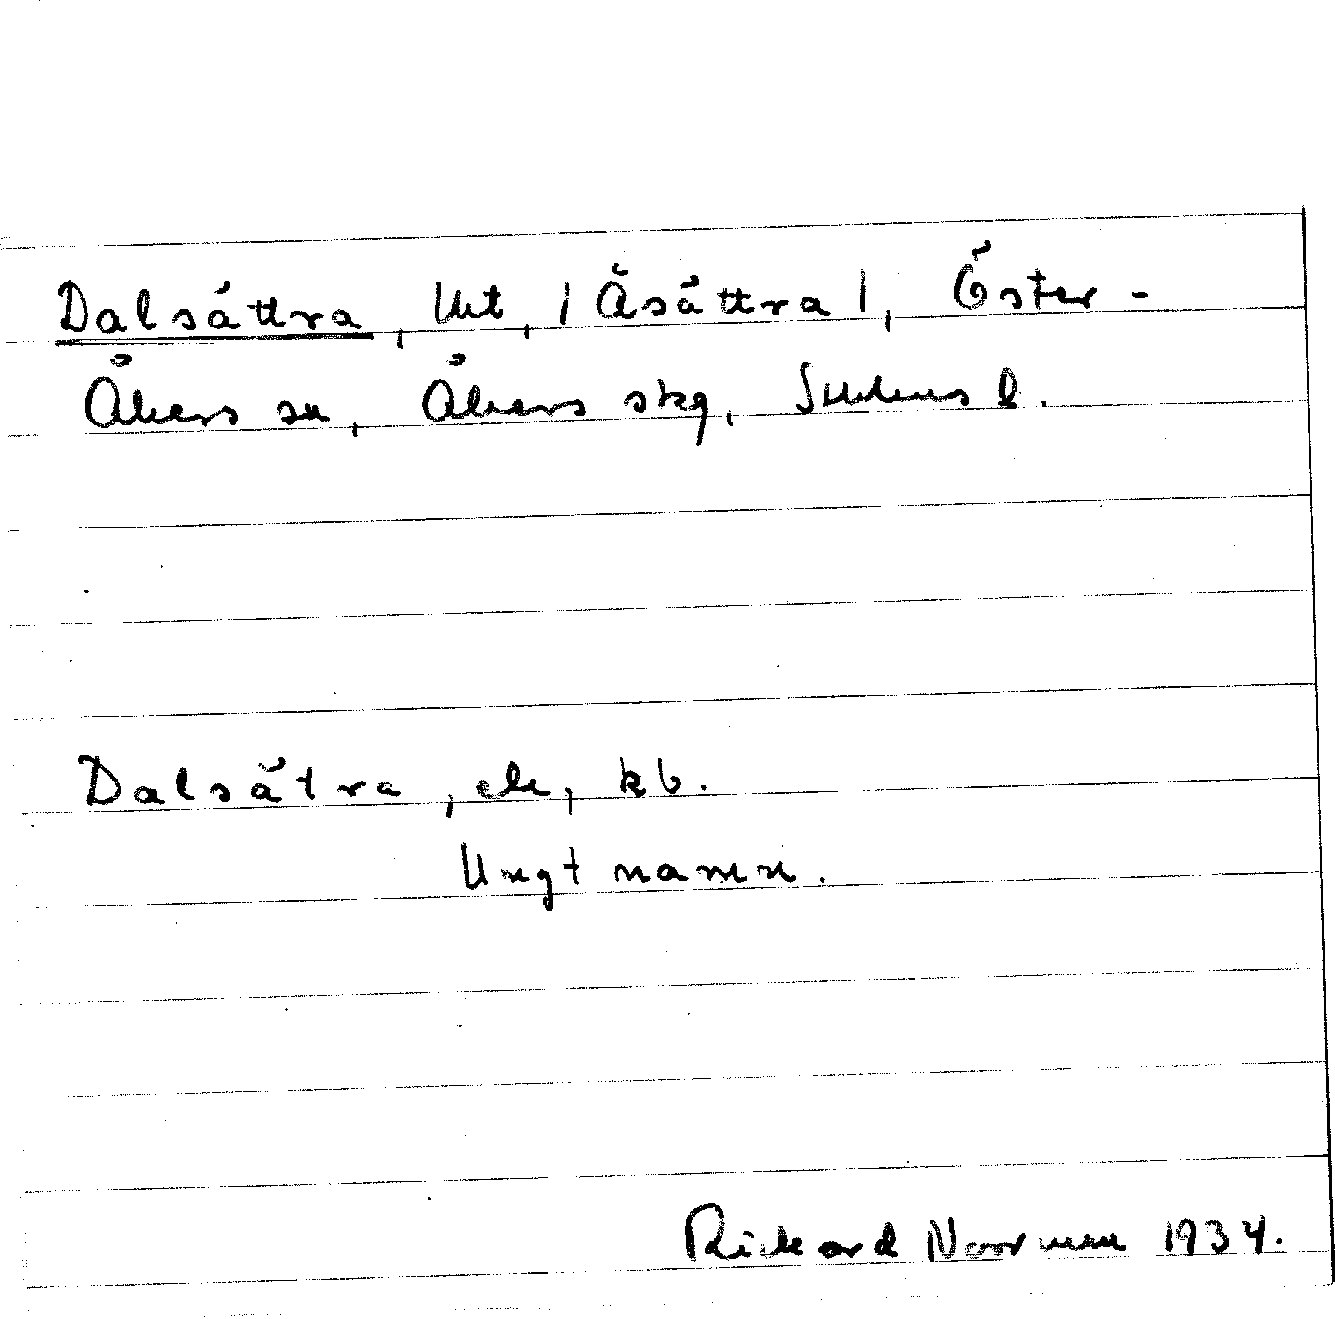 Dalsättra, lht, / Åsättra /, Öster-
Åkers sn, Åkers skg, Sthlms l.
Dalsätra, ek, kb.
Ungt namn.
Rickard Norrman 1934.